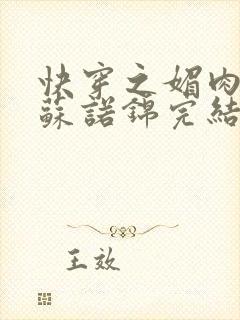 快穿之媚肉
蘇諾錦完結
王效